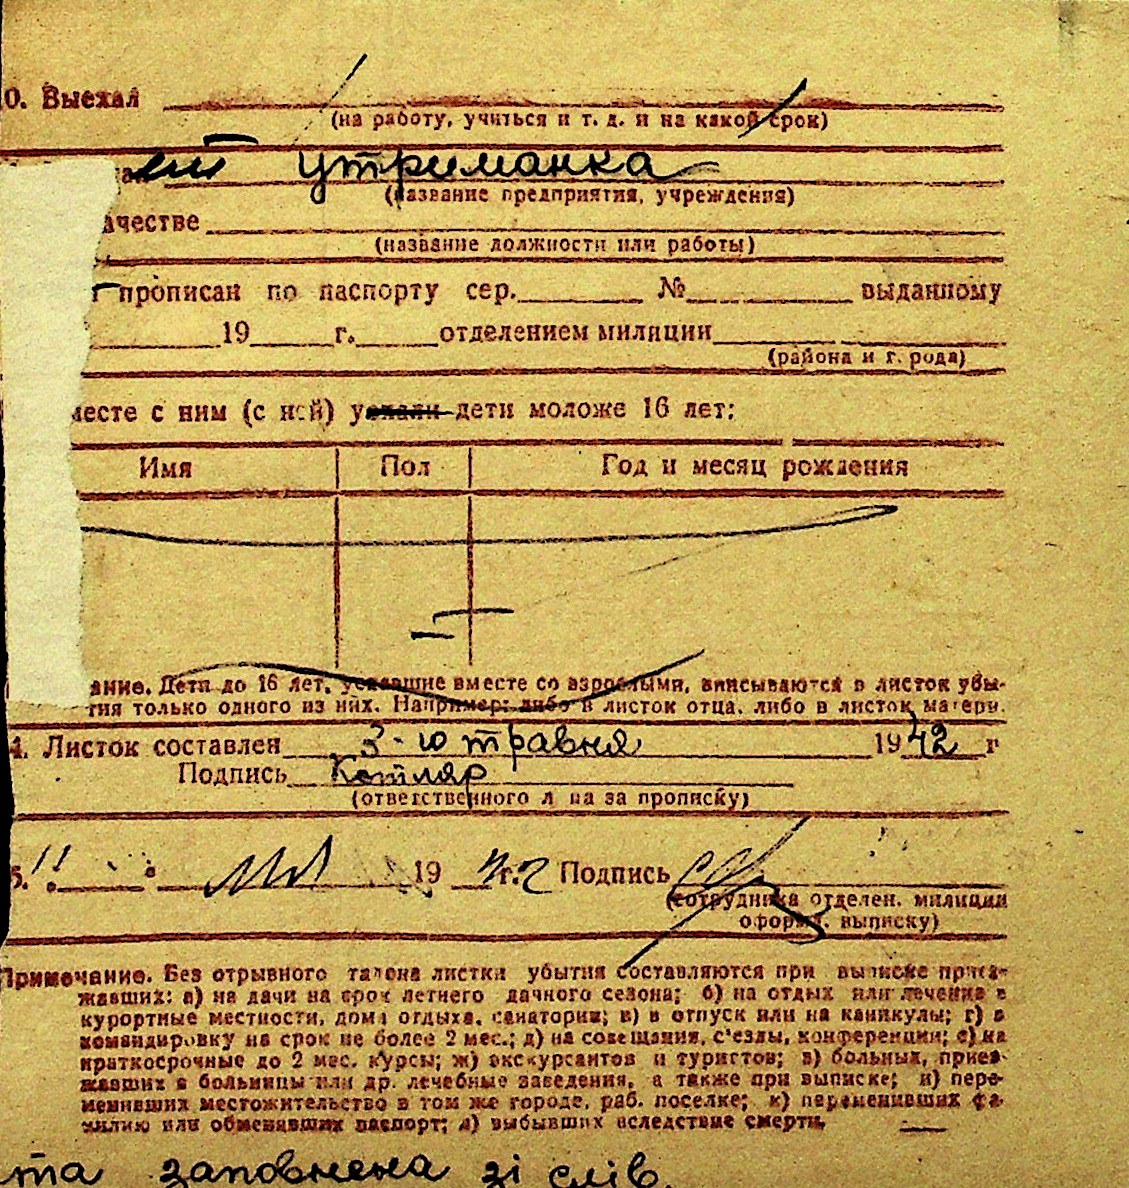 0. Выехал
(на работу, учиться и т. д. и на какой срок)
утриманка
(название предприятия, учреждения)
ачестве
(название должности или работы)
прописан по паспорту сер. № выданному
19 г. отделением милиции
(района и г. рода)
месте с ним (с ней) уехали дети моложе 16 лет:
Имя Пол Год и месяц рождения
ание. Дети до 16 лет, уехавшие вместе со взрослыми, вписываются в листок убы-
тия только одного из них. Например: либо в листок отца, либо в листок матери.
4. Листок составлен 3-го травня 1942 г
Подпись Котляр
(ответственного л на за прописку)
5. 11 19 42 г. Подпись
(сотрудника отделен. милиции
оформ. выписку)
Примечание. Без отрывного талона листки убытия составляются при выписке приез-
жавших: а) на дачи на срок летнего дачного сезона; б) на отдых или лечение в
курортные местности, дома отдыха, санатории; в) в отпуск или на каникулы; г) в
командировку на срок не более 2 мес.; д) на совещания, с'езды, конференции; е) на
краткосрочные до 2 мес. курсы; ж) экскурсантов и туристов; з) больных, приез-
жавших в больницы или др. лечебные заведения, а также при выписке; и) пере-
менивших местожительство в том же городе, раб. поселке; к) переменивших фа-
милию или обменявших паспорт; л) выбывших вследствие смерти.
та заповнена зі слів